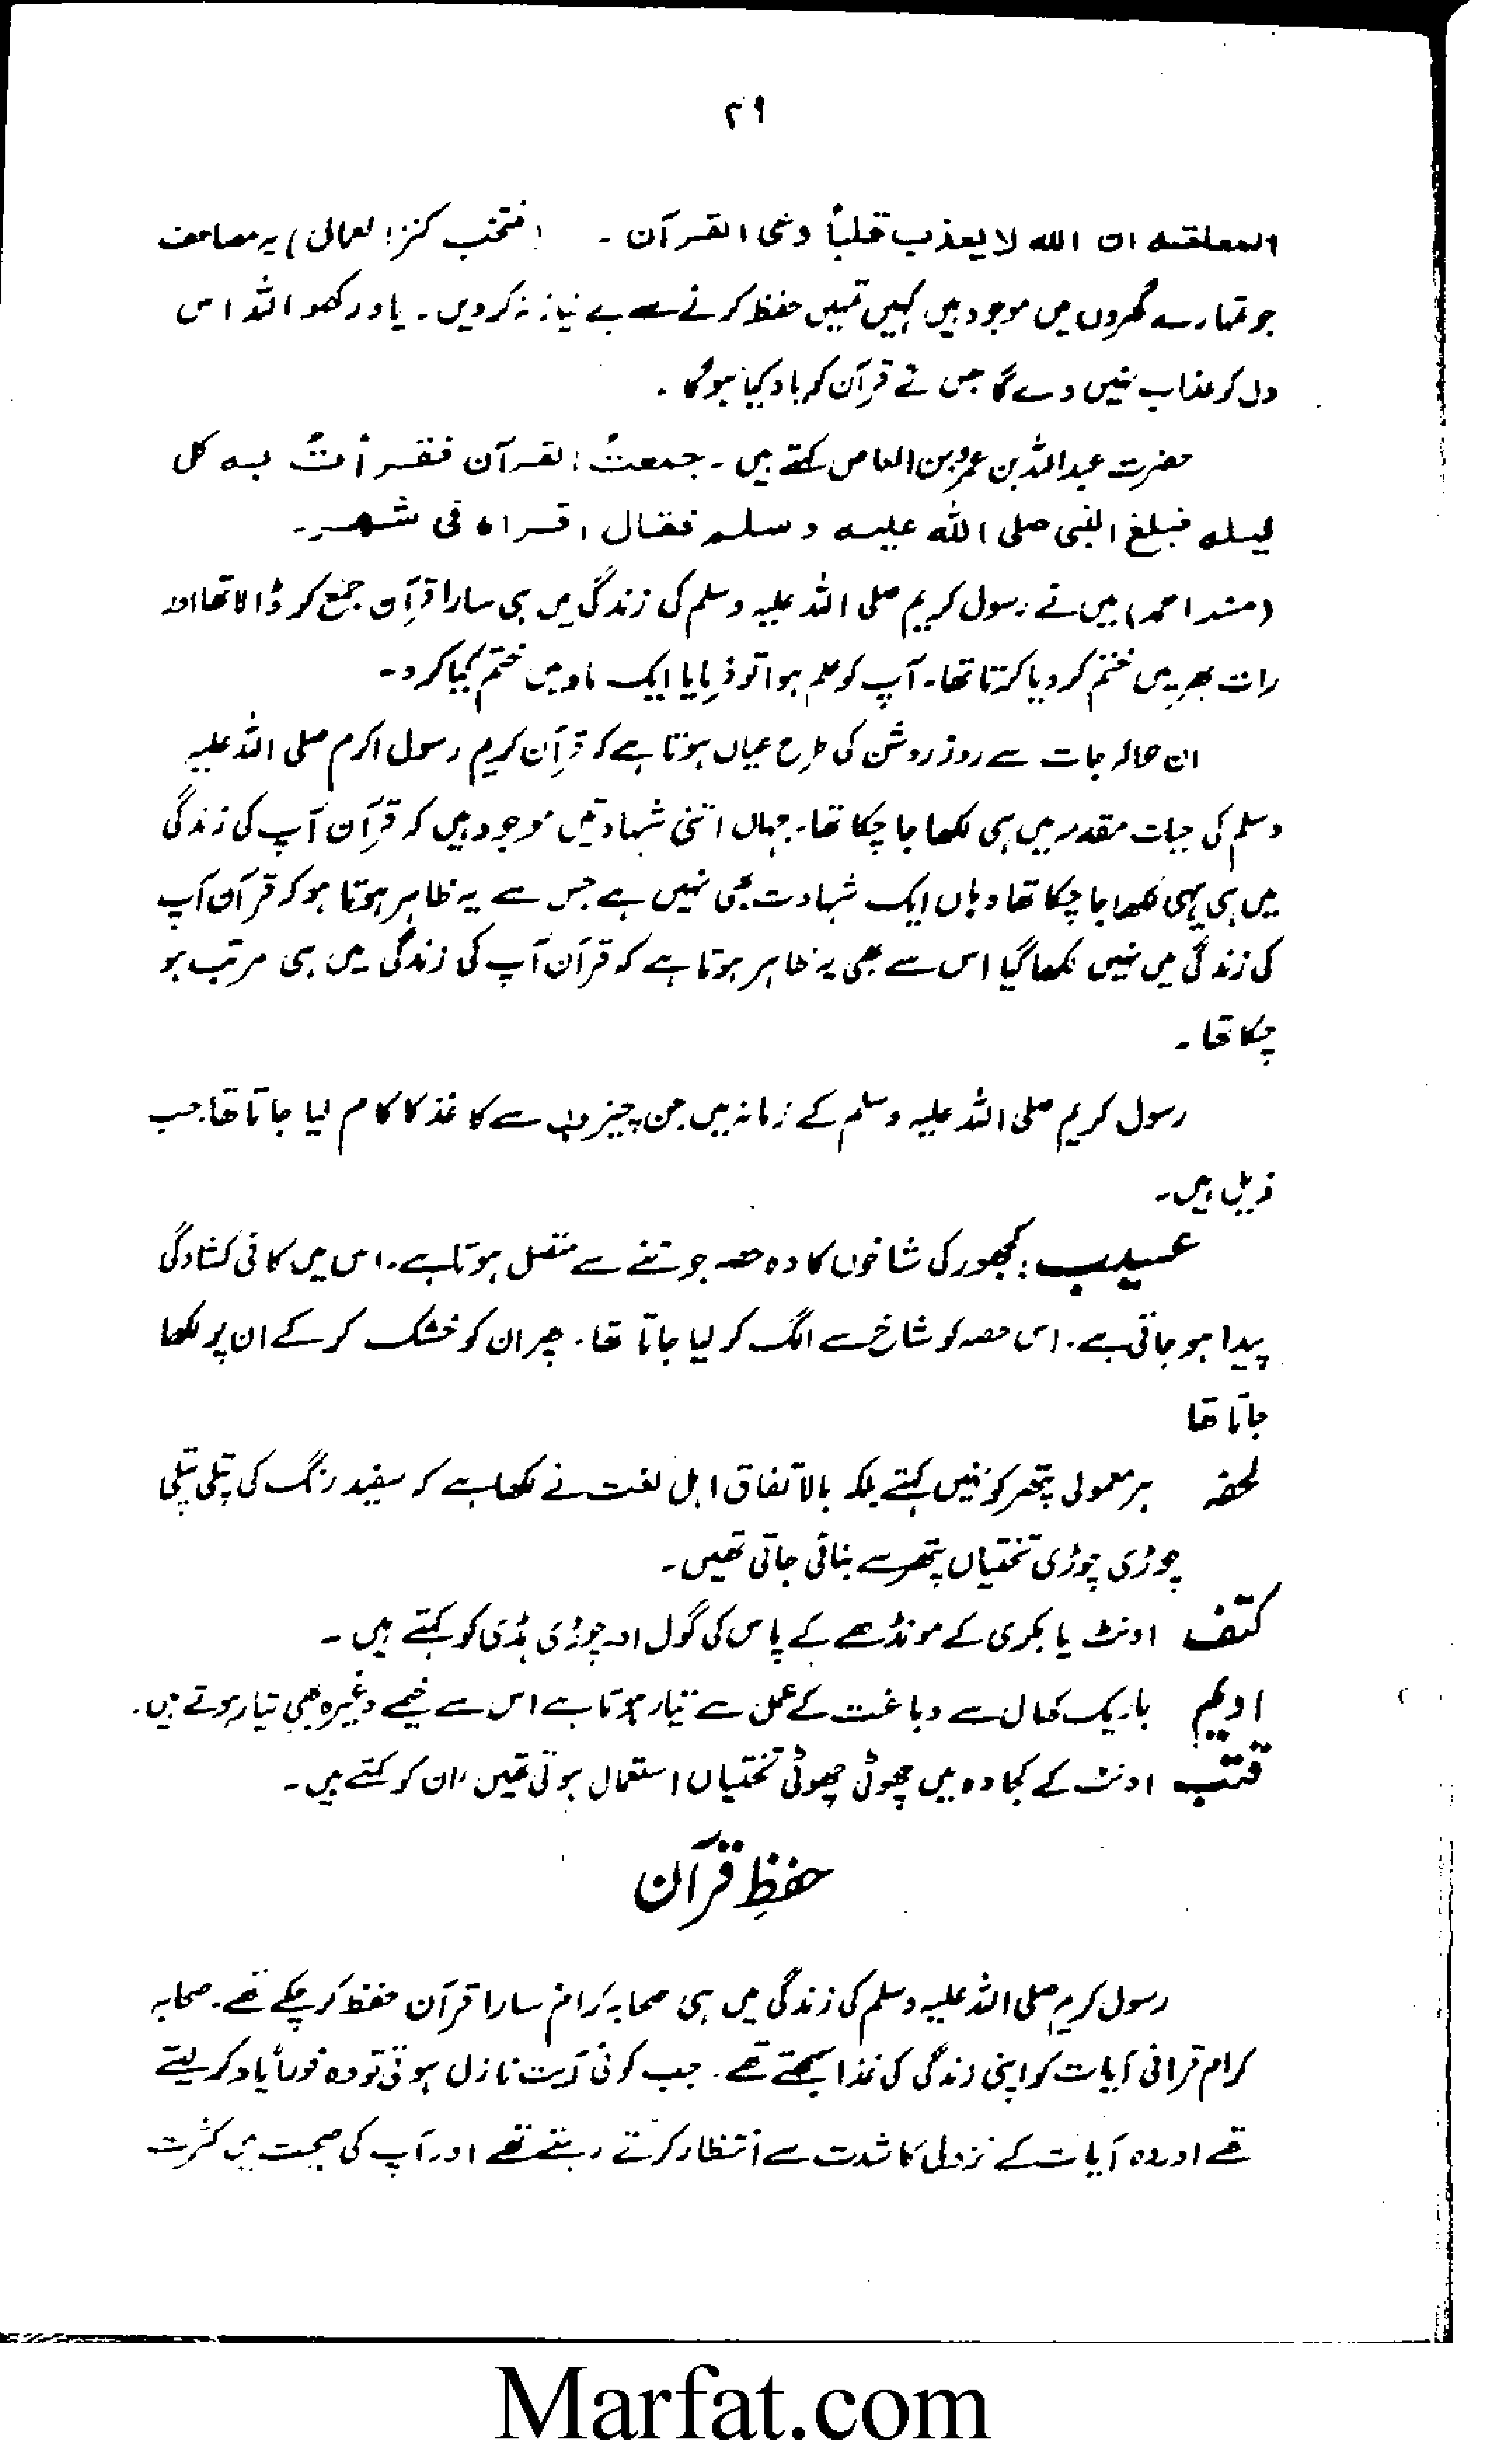 ۲۹
المعلقه ان الله لا يعذب قلباً وعى القرآن ۔ (منتخب کنز العمال) یہ مصاحف
جو تمہارے گھروں میں موجود ہیں کہیں تمہیں حفظ کرنے سے بے نیاز نہ کر دیں ۔ یاد رکھو اللہ اس
دل کو عذاب نہیں دے گا جس نے قرآن کو یاد کیا ہوگا ۔
حضرت عبداللہ بن عمرو بن العاص کہتے ہیں ۔ جمعتُ القرآن فقرأتُ به كل
ليله فبلغ النبى صلى الله عليه وسلم فقال اقراه فى شهر ۔
(مسند احمد) میں نے رسول کریم صلی اللہ علیہ وسلم کی زندگی میں ہی سارا قرآن جمع کر ڈالا تھا اور
رات بھر میں ختم کر دیا کرتا تھا ۔ آپ کو علم ہوا تو فرمایا ایک ماہ میں ختم کیا کرو ۔
ان حوالہ جات سے روز روشن کی طرح عیاں ہوتا ہے کہ قرآن کریم رسول اکرم صلی اللہ علیہ
وسلم کی حیات مقدسہ میں ہی لکھا جا چکا تھا ۔ جہاں اتنی شہادتیں موجود ہیں کہ قرآن آپ کی زندگی
میں ہی لکھا جا چکا تھا وہاں ایک شہادت بھی نہیں ہے جس سے یہ ظاہر ہوتا ہو کہ قرآن آپ
کی زندگی میں نہیں لکھا گیا اس سے بھی یہ ظاہر ہوتا ہے کہ قرآن آپ کی زندگی میں ہی مرتب ہو
چکا تھا ۔
رسول کریم صلی اللہ علیہ وسلم کے زمانہ میں جن چیزوں سے کاغذ کا کام لیا جاتا تھا حسب
ذیل ہیں ۔
عسیب : کھجور کی شاخوں کا وہ حصہ جو تنے سے متصل ہوتا ہے ۔ اس میں کافی کشادگی
پیدا ہو جاتی ہے ۔ اس حصہ کو شاخ سے الگ کر لیا جاتا تھا ۔ پھر ان کو خشک کر کے ان پر لکھا
جاتا تھا
لخفہ ہر معمولی پتھر کو نہیں کہتے بلکہ بالاتفاق اہل لغت نے لکھا ہے کہ سفید رنگ کی پتلی پتلی
چوڑی چوڑی تختیاں پتھر سے بنائی جاتی تھیں ۔
کتف اونٹ یا بکری کے مونڈھے کے پاس کی گول اور چوڑی ہڈی کو کہتے ہیں ۔
ادیم باریک کھال سے دباغت کے عمل سے تیار ہوتا ہے اس سے خیمے وغیرہ بھی تیار ہوتے ہیں ۔
قتب اونٹ کے کجاوہ میں چھوٹی چھوٹی تختیاں استعمال ہوتی تھیں ان کو کہتے ہیں ۔
حفظِ قرآن
رسول کریم صلی اللہ علیہ وسلم کی زندگی میں ہی صحابہ کرامؓ سارا قرآن حفظ کر چکے تھے ۔ صحابہ
کرام قرانی آیات کو اپنی زندگی کی غذا سمجھتے تھے ۔ جب کوئی آیت نازل ہوتی تو وہ فوراً یاد کر لیتے
تھے اور وہ آیات کے نزول کا شدت سے انتظار کرتے رہتے تھے اور آپ کی صحبت میں کثرت
Marfat.com